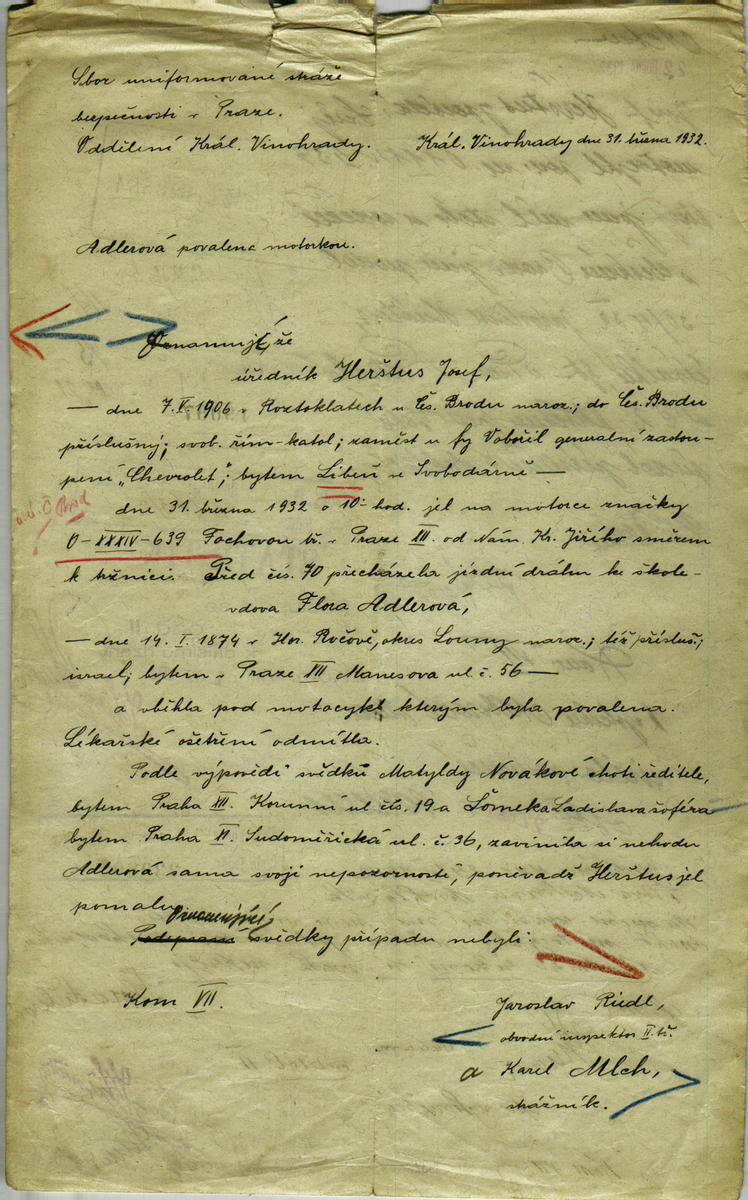 Sbor uniformované stráže
bezpečnosti v Praze.
Oddělení Král. Vinohrady.
Král. Vinohrady dne 31. března 1932.
Adlerová povalena motorkou.
Oznamuji, že
úředník Herštus Josef,
— dne 7.V.1906 v Roztoklatech u Čes. Brodu naroz.; do Čes. Brodu
příslušný; svob. řím-katol; zaměst u fy Vobořil generalní zastou-
pení „Chevrolet“; bytem Libeň ve Svobodárně —
dne 31. března 1932 o 10. hod. jel na motorce značky
Brod
O-XXXIV-639 Fochovou tř. v Praze XII. od Nám. Kr. Jiřího směrem
k tržnici. Před čís. 70 přecházela jízdní dráhu ke škole-
vdova Flora Adlerová,
— dne 14. I. 1874 v Hor. Ročově, okres Louny naroz.; též přísluš.;
israel; bytem v Praze XII Manesova ul. č. 56 —
a vběhla pod motocykl kterým byla povalena.
Lékařské ošetření odmítla.
Podle výpovědi svědků Matyldy Novákové choti ředitele,
bytem Praha XII. Korunní ul čís. 19 a Šömeka Ladislava šoféra
bytem Praha II. Sudoměřická ul. č. 36, zavinila si nehodu
Adlerová sama svojí nepozorností, poněvadž Herštus jel
pomalu.
Oznamující
Podepsaní svědky případu nebyli.
Kom VII.
Jaroslav Riedl,
obvodní inspektor II. tř.
a Karel Mlch,
strážník.